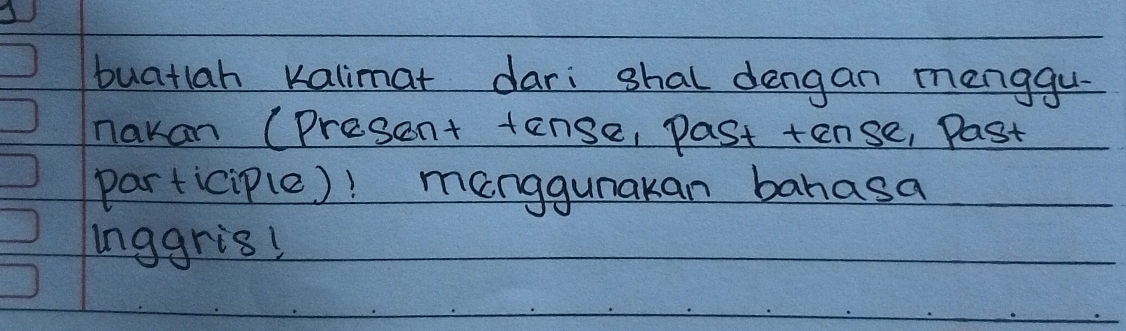 buatlah kalimat dari shal dengan menggu-
nakan (Present tense, past tense, Past
participle)! menggunakan bahasa
inggris!